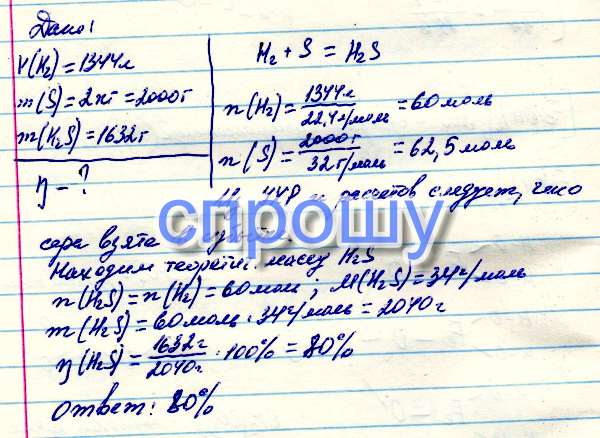 Дано:
V(H₂)=1344л
m(S)=2кг=2000г
m(H₂S)=1632г
η-?
H₂+S=H₂S
n(H₂)=1344л/22,4л/моль=60моль
n(S)=2000г/32г/моль=62,5моль
УХР и расчетов следует, что
сера взята
спрошу
Находим теоретич. массу H₂S
n(H₂S)=n(H₂)=60моль; M(H₂S)=34г/моль
m(H₂S)=60моль·34г/моль=2040г
η(H₂S)=1632г/2040г·100%=80%
Ответ: 80%